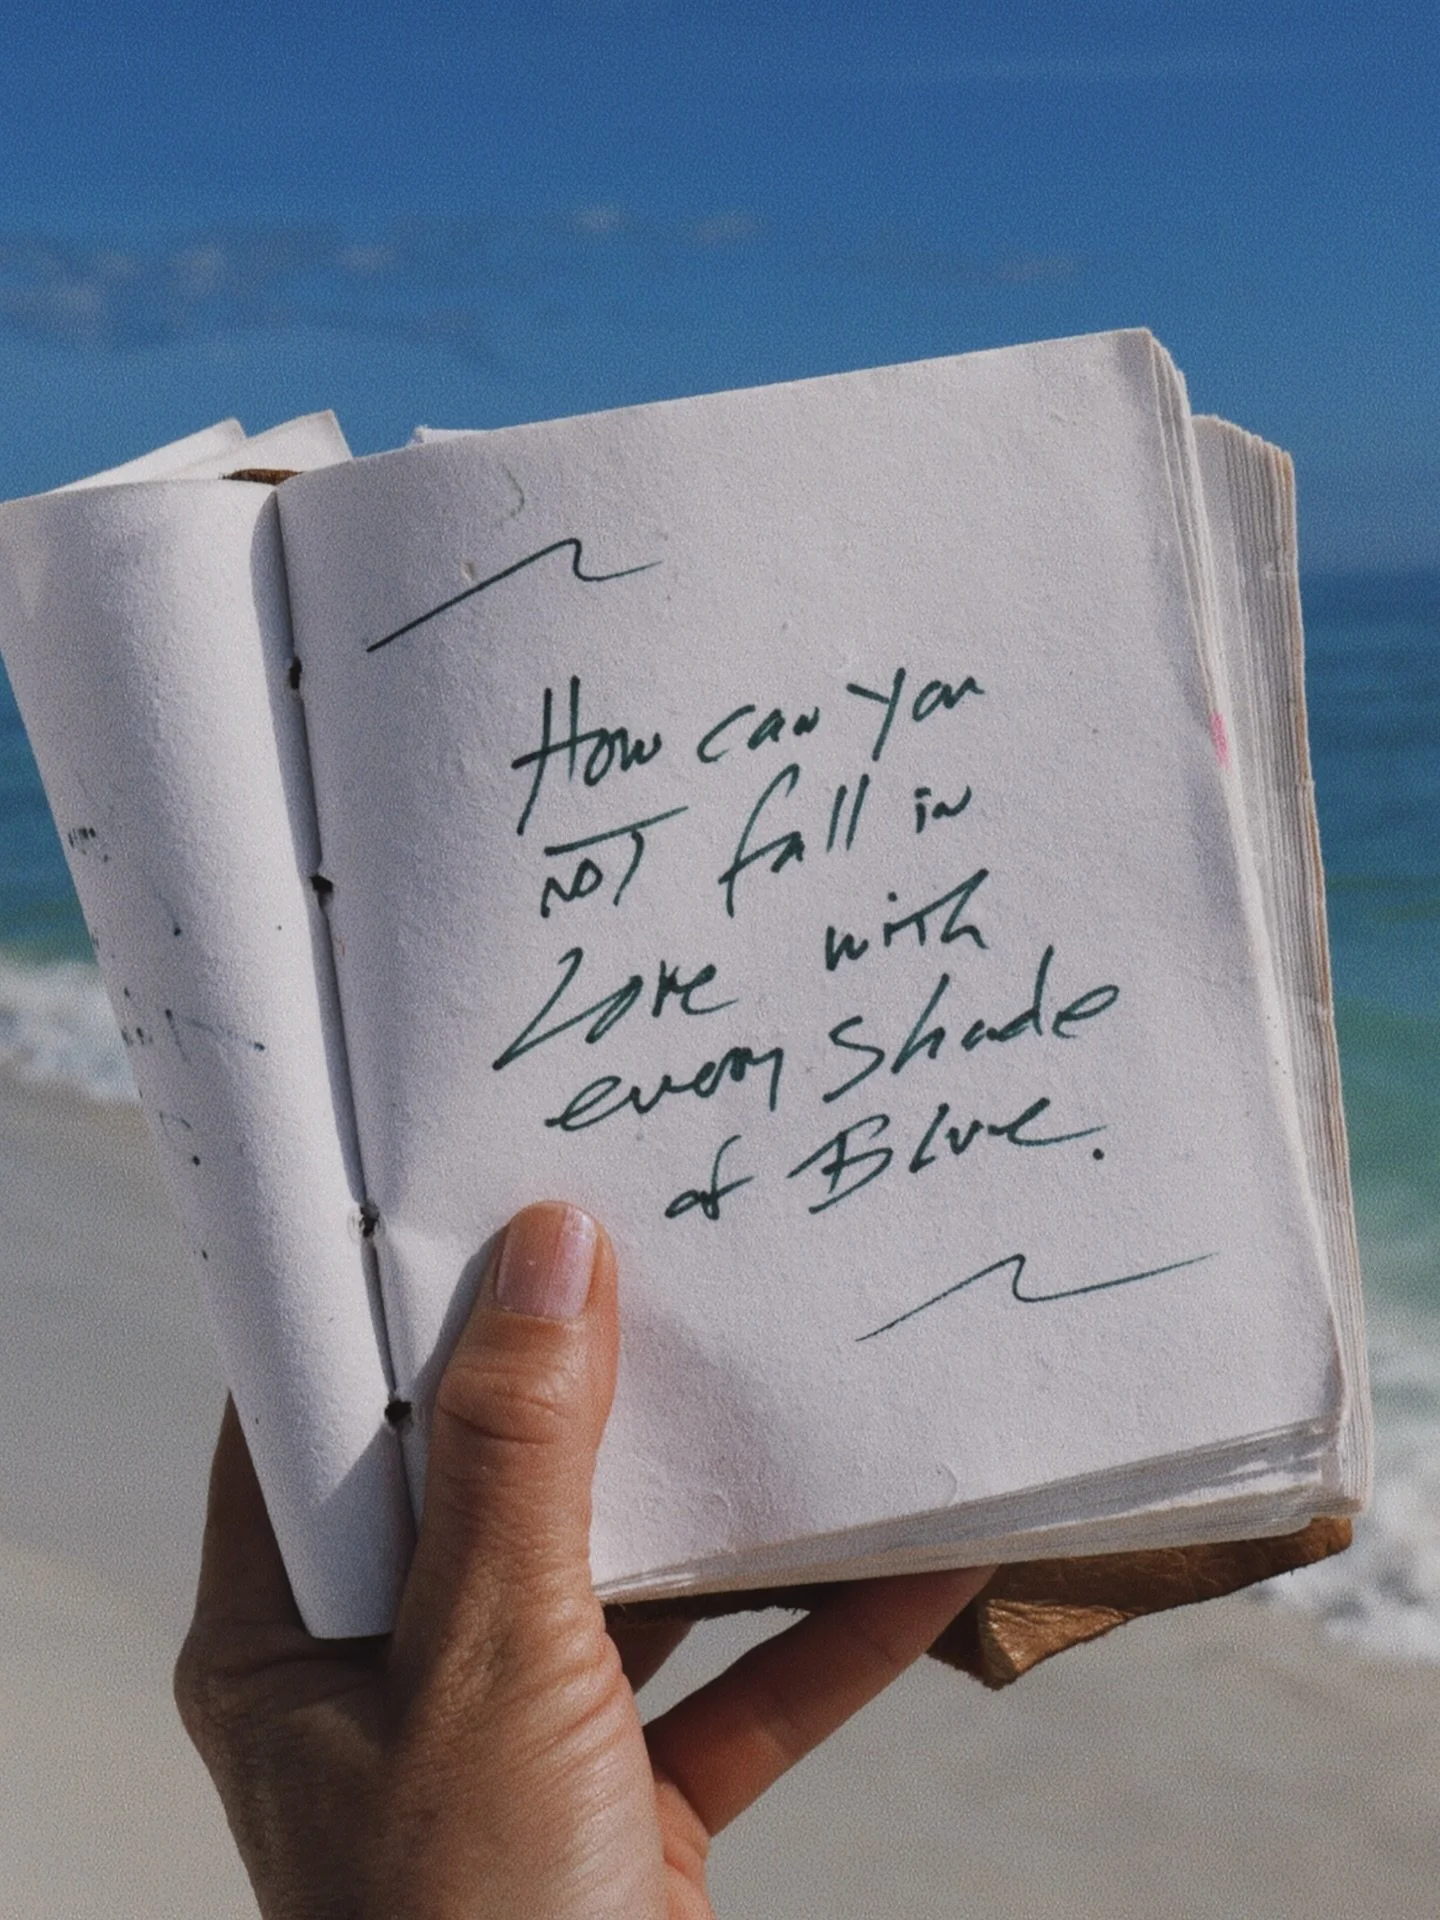 How can you
NOT fall in
Love with
every Shade
of Blue.